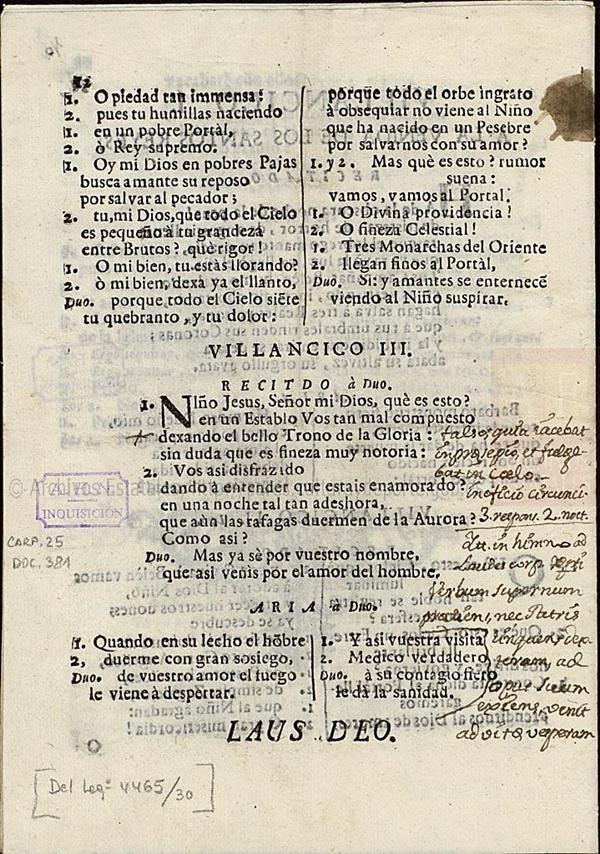 12
1. O piedad tan immensa!
2. pues tu humillas naciendo
1. en un pobre Portàl,
2. ò Rey supremo.
1. Oy mi Dios en pobres Pajas
busca amante su reposo
por salvar al pecador;
2. tu, mi Dios, que todo el Cielo
es pequeño à tu grandeza
entre Brutos? què rigor!
1. O mi bien, tu estàs llorando?
2. ò mi bien, dexa ya el llanto,
Duo. porque todo el Cielo siẽte
tu quebranto, y tu dolor:
porque todo el orbe ingrato
à obsequiar no viene al Niño
que ha nacido en un Pesebre
por salvarnos con su amor?
1. y 2. Mas què es esto? rumor
suena:
vamos, vamos al Portal.
1. O Divina providencia!
2. O fineza Celestial!
1. Tres Monarchas del Oriente
2. llegan finos al Portàl,
Duo. Si: y amantes se enternecẽ
viendo al Niño suspirar.
VILLANCICO III.
RECITDO à Duo.
1. NIño Jesus, Señor mi Dios, què es esto?
en un Establo Vos tan mal compuesto
dexando el bello Trono de la Gloria:
sin duda que es fineza muy notoria:
2. Vos asi disfrazido
dando à entender que estais enamorado?
en una noche tal tan adeshora,
que aùn las rafagas duermen de la Aurora?
Como asi?
Duo. Mas ya sè por vuestro nombre,
que asi venis por el amor del hombre.
falso, quia iacebat
in præsepio, et fulge-
bat in cœlo.
in officio circunci.
3. respons. 2. noct.
It. in himno ad
Laudes corp.
Verbum supernum
prodiens, nec Patris
linquens dex
teram, ad
opus suum
exiens, venit
ad vitæ vesperam
ARIA à Duo.
1. Quando en su lecho el hõbre
2. duerme con gran sosiego,
Duo. de vuestro amor el fuego
le viene à despertar.
1. Y asi vuestra visita
2. Medico verdadero,
Duo. à su contagio fiero
le dà la sanidad.
LAUS DEO.
© Archivos Estatales
A. H. N.
INQUISICIÓN
CARP. 25
DOC. 381
[Del Legº 4465/30]